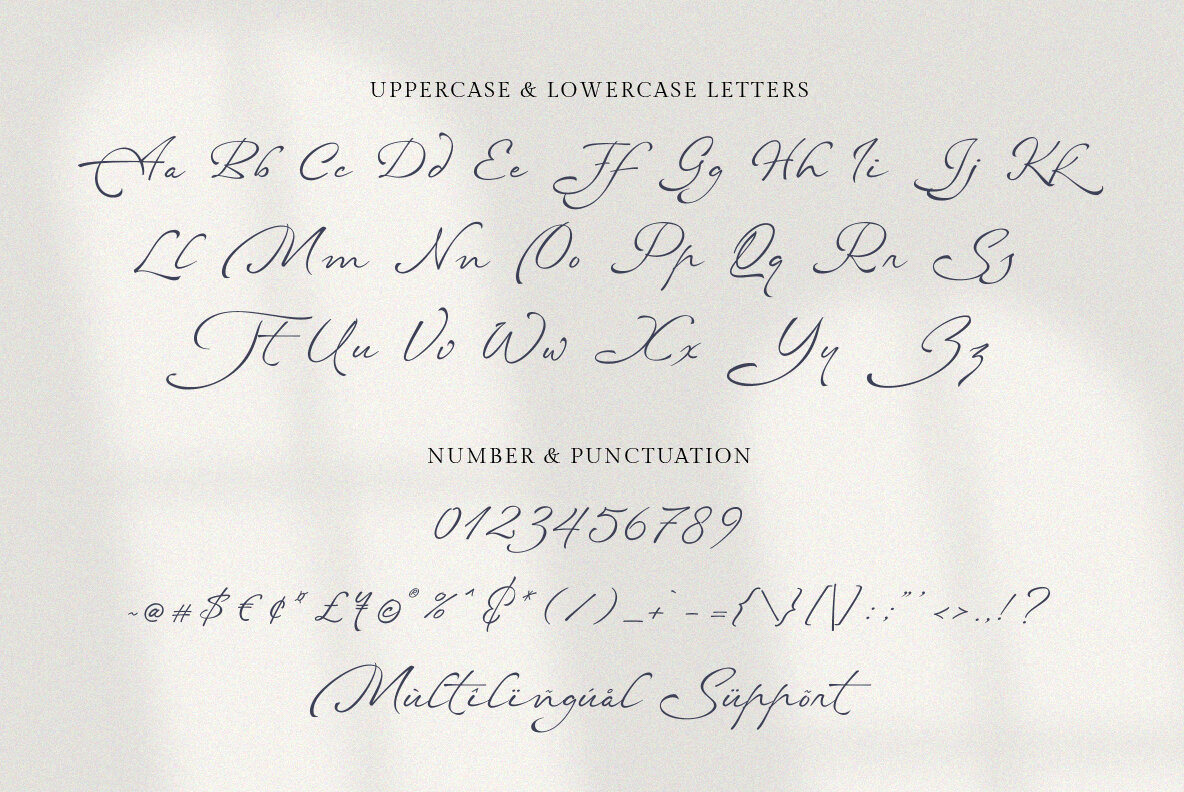 UPPERCASE & LOWERCASE LETTERS
Aa Bb Cc Dd Ee Ff Gg Hh Ii Jj Kk
Ll Mm Nn Oo Pp Qq Rr Ss
Tt Uu Vv Ww Xx Yy Zz
NUMBER & PUNCTUATION
0123456789
~@#$€¢¤£¥©®%^&*(/)_+`-={\}[|]:;"'<>.,!?
Mùltîlïñgúål Süppõrt